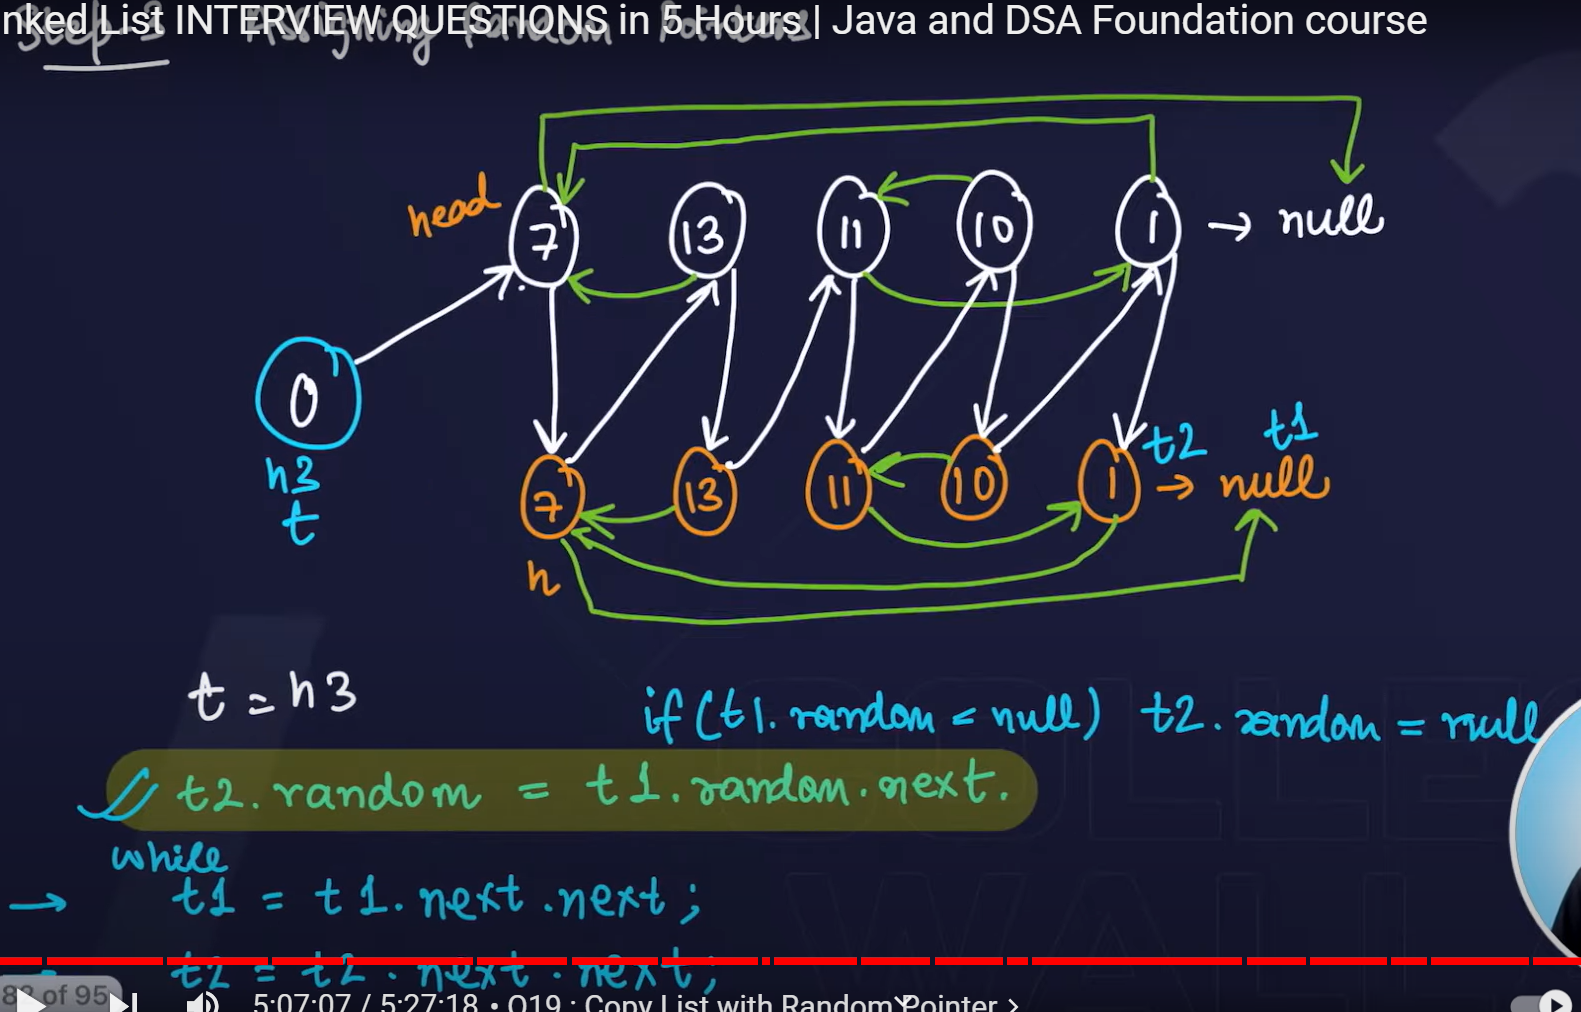 nked List INTERVIEW QUESTIONS in 5 Hours | Java and DSA Foundation course
Step-3 Assigning Random Pointers
head 7 13 11 10 1 → null
0
h3
t
7 13 11 10 1 → null
t2 t1
h
t = h3
if (t1.random = null) t2.random = null
t2.random = t1.random.next.
while
t1 = t1.next.next;
t2 = t2.next.next;
of 95
5:07:07 / 5:27:18 • Q19 : Copy List with Random Pointer >